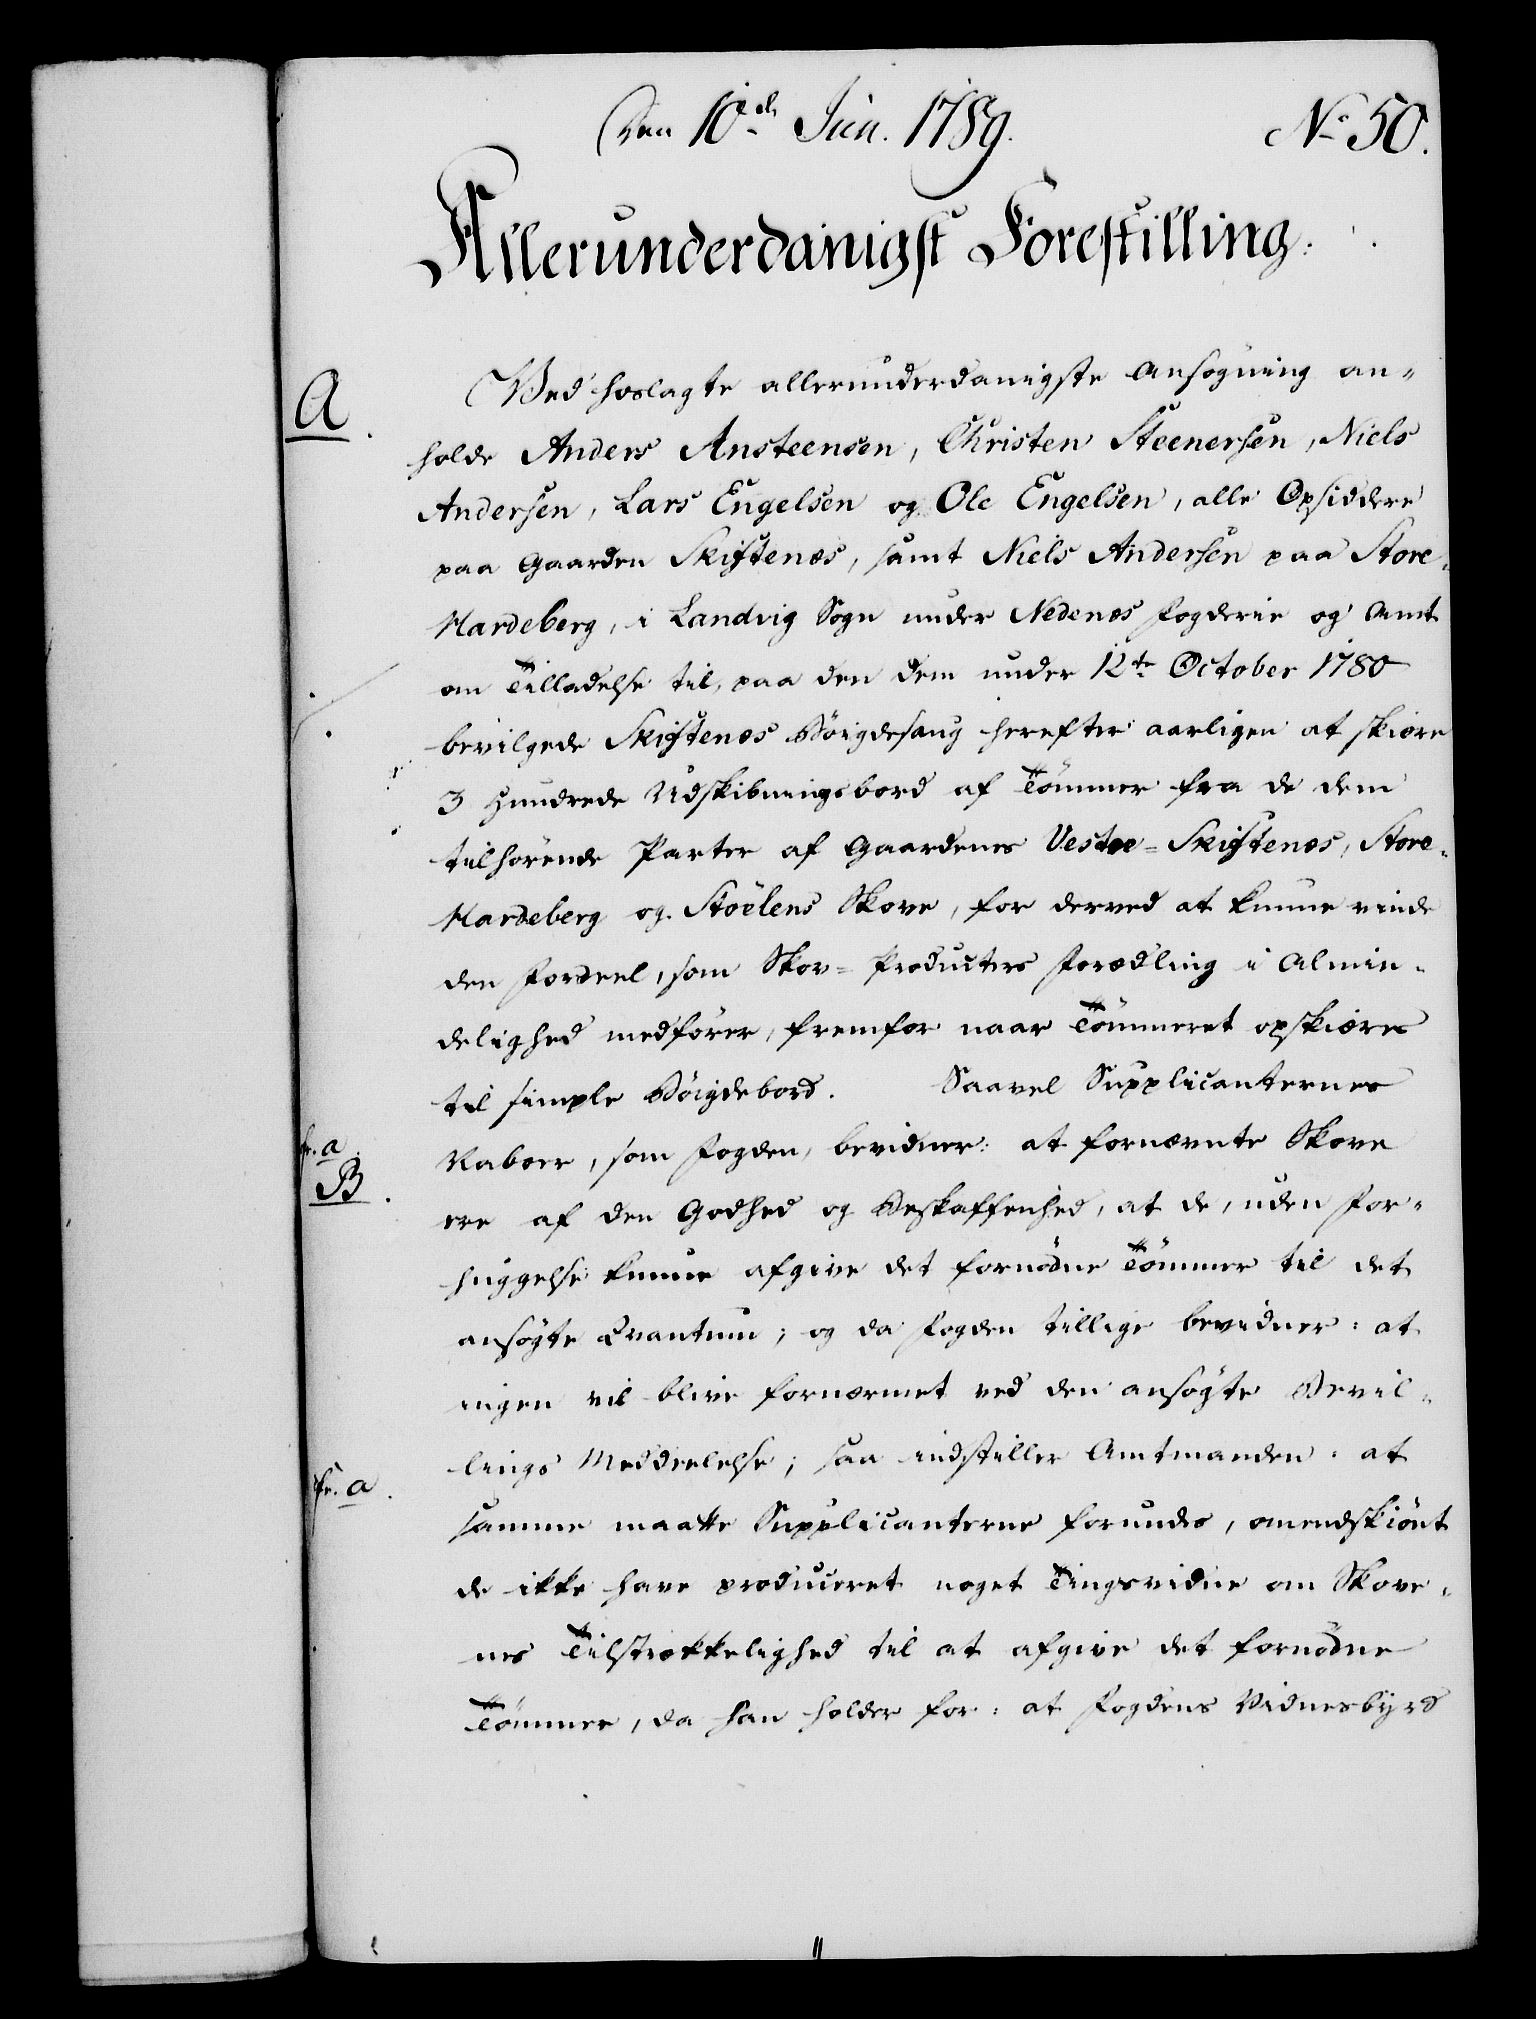 Den 10de Jun. 1789. No 50.
Allerunderdanigst Forestilling.
A. Ved hoslagte allerunderdanigste Ansøgning an-
holde Anders Ansteensen, Christen Steenersen, Niels
Andersen, Lars Engelsen og Ole Engelsen, alle Opsiddere
paa Gaarden Skiftenæs, samt Niels Andersen paa Store-
Hardeberg, i Landvig Sogn under Nedenæs Fogderie og Amt
om Tilladelse til, paa den dem under 12te October 1780
bevilgede Skiftenæs Bøigdesaug herefter aarligen at skiære
3 Hundrede Udskibningsbord af Tømmer fra de dem
tilhørende Parter af Gaardenes Vestre-Skiftenæs, Store-
Hardeberg og Støelens Skove, for derved at kunne vinde
den Fordeel, som Skov-Producters Forædling i Almin-
delighed medfører, fremfor naar Tømmeret opskiæres
til simple Bøigdebord. Saavel Supplicanternes
fr. a. Naboer, som Fogden, bevidner: at fornævnte Skove
B. ere af den Godhed og Beskaffenhed, at de, uden For-
huggelse kunne afgive det fornødne Tømmer til det
ansøgte Qvantum; og da Fogden tillige bevidner: at
ingen vil blive fornærmet ved den ansøgte Bevil-
lings Meddeelelse; saa indstiller Amtmanden: at
fr. a. samme maatte Supplicanterne forundes, omendskiønt
de ikke have produceret noget Tingsvidne om Skove-
nes Tilstrækkelighed til at afgive det fornødne
Tømmer, da han holder for: at Fogdens Vidnesbyrd